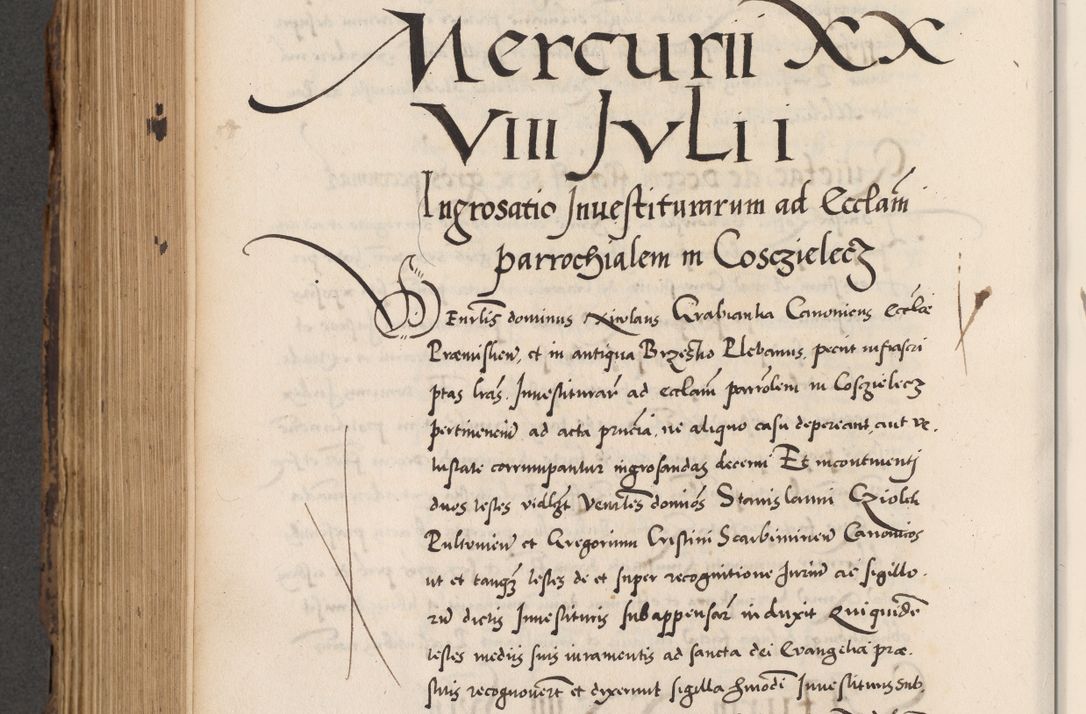 Mercurii XX
VIII JVLII
Ingrosatio Inuestiturarum ad Ecclam
parrochialem in Cosczielecz
VEnrlis dominus Nicolaus Grabianka Canonicus Ecclae
Præmislien, et in antiqua Brzesko Plebanus, peciit infrascri
ptas lras. Inuestiturar ad ecclam parrolem in Cosczielecz
pertinenem ad acta pncia, ne aliquo casu depereant, aut ve.
tustate corrumpantur ingrosandas decerni Et incontinenti
duos testes vidlzt Venrles dominos Stanislaum Cziolek
Pultouien et Gregorium Cristini Scarbimirien Canonicos
ut et tanqz testes de et super recognitione Jurium ac sigillo.
rum dictis Inuestituris subappensar induxit Quiquidem
testes mediis suis iuramentis ad sancta dei Euangelia præ.
stitis recognouert et dixerunt sigilla hmodi Inuestituris sub